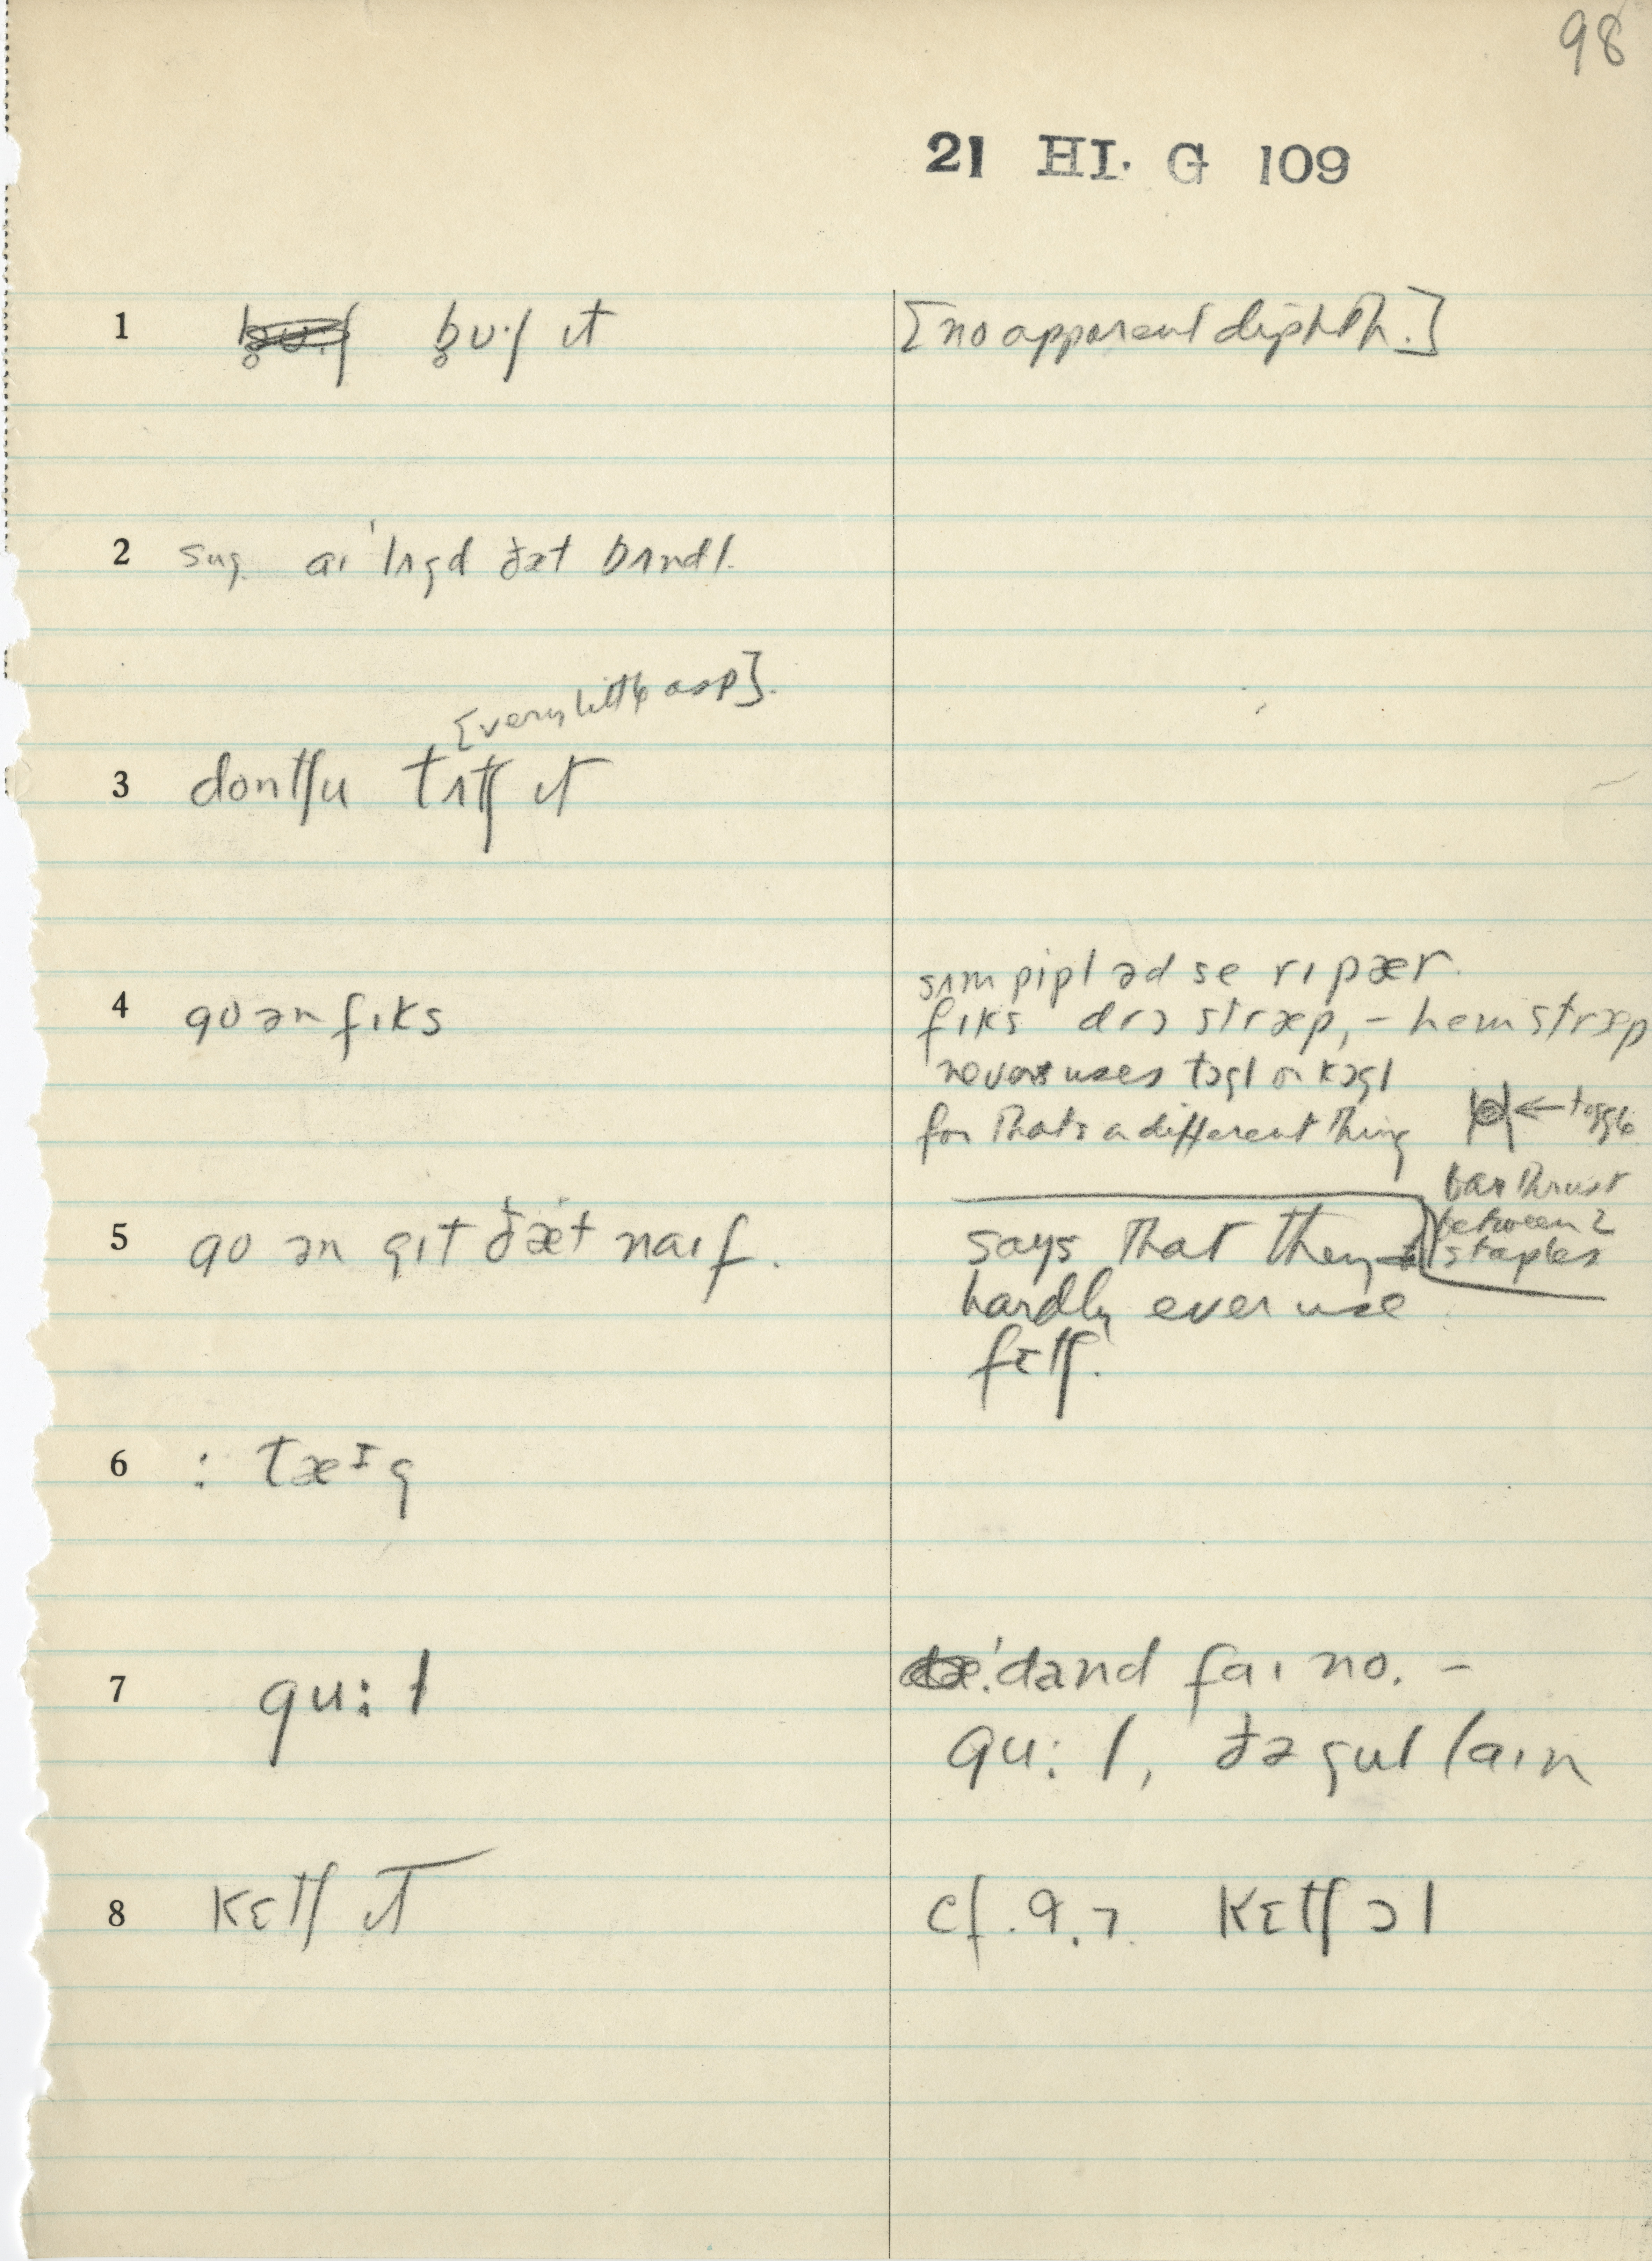 98
21 HI. G 109
1 b̥ʊ·ʃ ɪt [no apparent diphth.]
2 sug. aɪ ˈlʌgd ðæt bʌndl.
[very little asp].
3 dontʃu tʌtʃ ɪt
4 go ən fɪks
sʌm pipl əd se rɪpær.
fɪks drɔ stræp, – hem stræp
never uses tɔgl or kɔgl
for that's a different thing
← toggle
bar thrust
between 2
staples
5 go ən gɪt ðæt naɪf.
says that they
hardly ever use
fɛtʃ.
6 : tæɪg
7 gu:l
ˈdand faɪ no. –
gu:l, ðə gul laɪn
8 kɛtʃ ɪt cf. 9.7. kɛtʃ ɔl